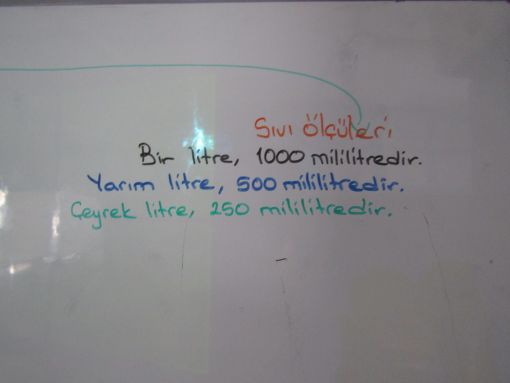 Sıvı ölçüleri
Bir litre, 1000 mililitredir.
Yarım litre, 500 mililitredir.
Çeyrek litre, 250 mililitredir.